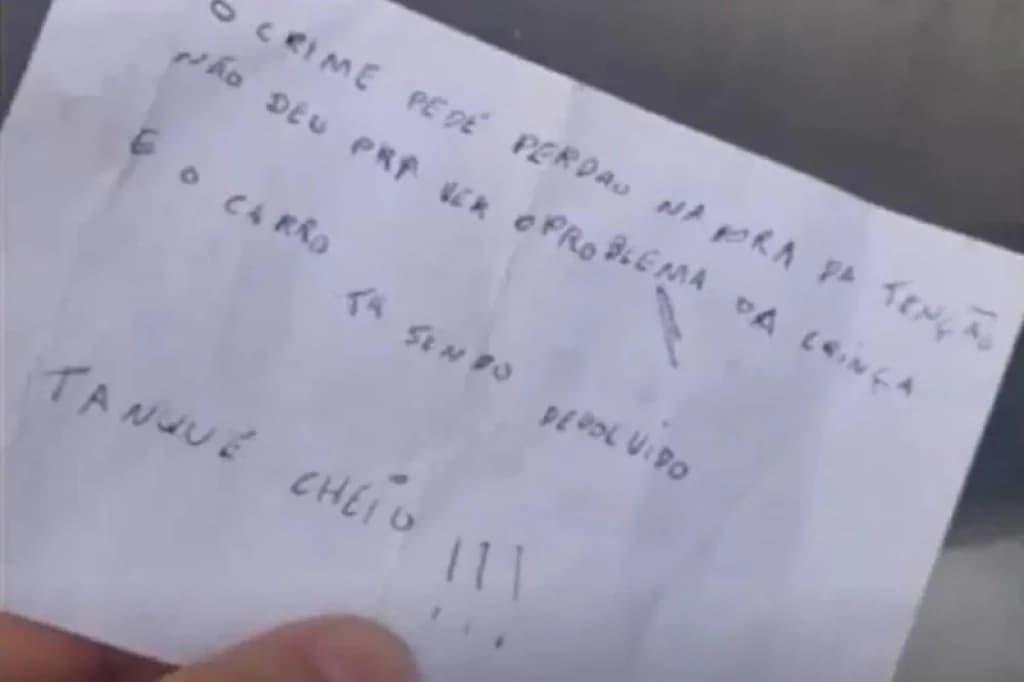 O CRIME PEDE PERDAO NA ORA DA TENÇÃO
NÃO DEU PRA VER O PROBLEMA DA CRINÇA
E O CARRO TA SENDO DEVOLVIDO
TANQUÉ CHEIO !!!